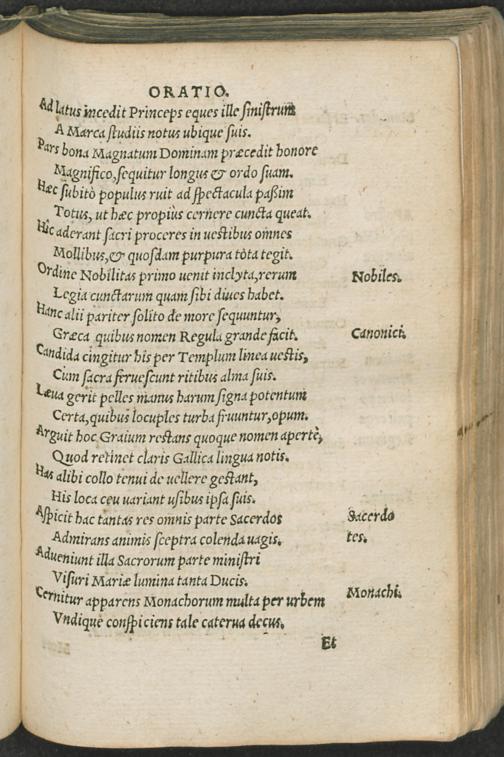 ORATIO.
Ad latus incedit Princeps eques ille sinistrum
A Marca studiis notus ubique suis.
Pars bona Magnatum Dominam præcedit honore
Magnifico, sequitur longus & ordo suam.
Hæc subitò populus ruit ad spectacula paßim
Totus, ut hæc propius cernere cuncta queat.
Hic aderant sacri proceres in uestibus omnes
Mollibus, & quosdam purpura tota tegit.
Ordine Nobilitas primo uenit inclyta, rerum
Nobiles.
Legia cunctarum quam sibi diues habet.
Hanc alii pariter solito de more sequuntur,
Græca quibus nomen Regula grande facit.
Canonici.
Candida cingitur his per Templum linea uestis,
Cum sacra feruescunt ritibus alma suis.
Læua gerit pelles manus harum signa potentum
Certa, quibus locuples turba fruuntur, opum.
Arguit hoc Graium restans quoque nomen apertè,
Quod retinet claris Gallica lingua notis.
Has alibi collo tenui de uellere gestant,
His loca ceu uariant usibus ipsa suis.
Aspicit hac tantas res omnis parte Sacerdos
Sacerdo
Admirans animis sceptra colenda uagis.
tes.
Adueniunt illa Sacrorum parte ministri
Visuri Mariæ lumina tanta Ducis.
Cernitur apparens Monachorum multa per urbem
Monachi.
Vndique conspiciens tale caterua decus.
Et